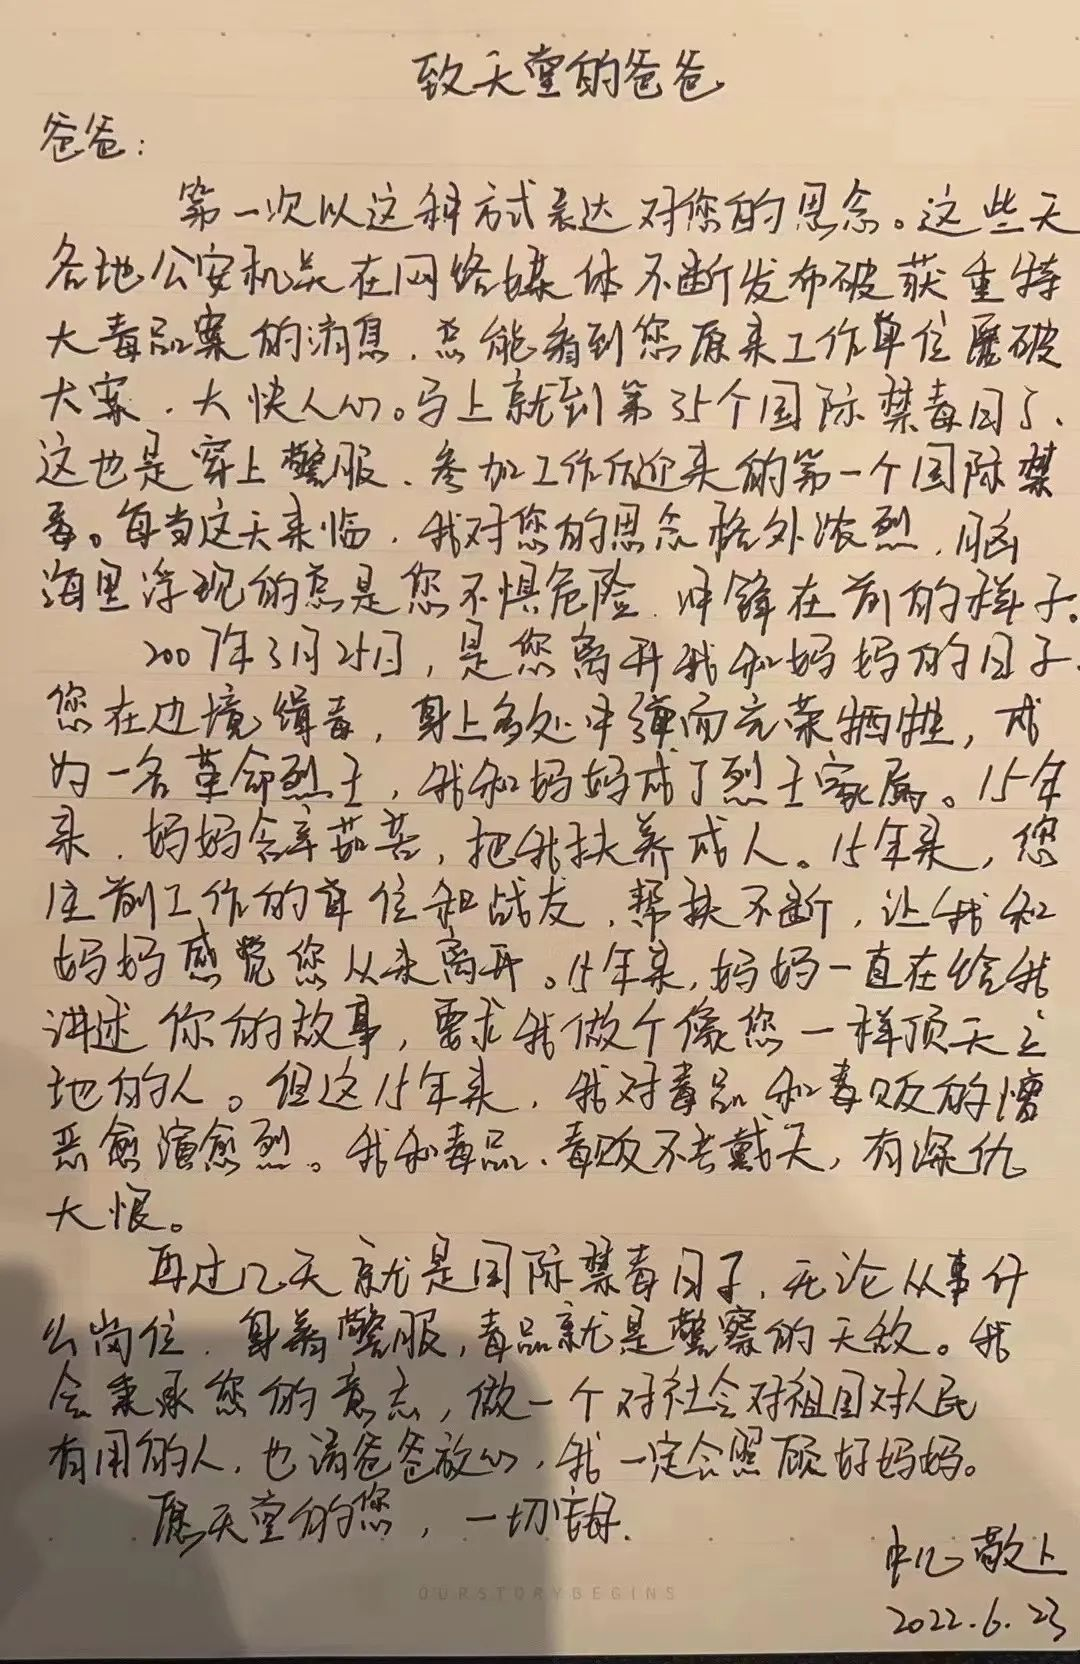 致天堂的爸爸
爸爸：
第一次以这种方式表达对您的思念。这些天
各地公安机关在网络媒体不断发布破获重特
大毒品案的消息，总能看到您原来工作单位屡破
大案，大快人心。马上就到第35个国际禁毒日了，
这也是穿上警服、参加工作后迎来的第一个国际禁
毒。每当这天来临，我对您的思念格外浓烈，脑
海里浮现的总是您不惧危险、冲锋在前的样子。
2007年3月25日，是您离开我和妈妈的日子，
您在边境缉毒，身上多处中弹而光荣牺牲，成
为一名革命烈士，我和妈妈成了烈士家属。15年
来，妈妈含辛茹苦，把我扶养成人。15年来，您
生前工作的单位和战友，帮扶不断，让我和
妈妈感觉您从未离开。15年来，妈妈一直在给我
讲述你的故事，要求我做个像您一样顶天立
地的人。但这15年来，我对毒品和毒贩的憎
恶愈演愈烈。我和毒品、毒贩不共戴天，有深仇
大恨。
再过几天就是国际禁毒日子，无论从事什
么岗位，身着警服，毒品就是警察的天敌。我
会秉承您的意志，做一个对社会对祖国对人民
有用的人，也请爸爸放心，我一定会照顾好妈妈。
愿天堂的您，一切安好。
敬上
2022.6.23
OURSTORYBEGINS